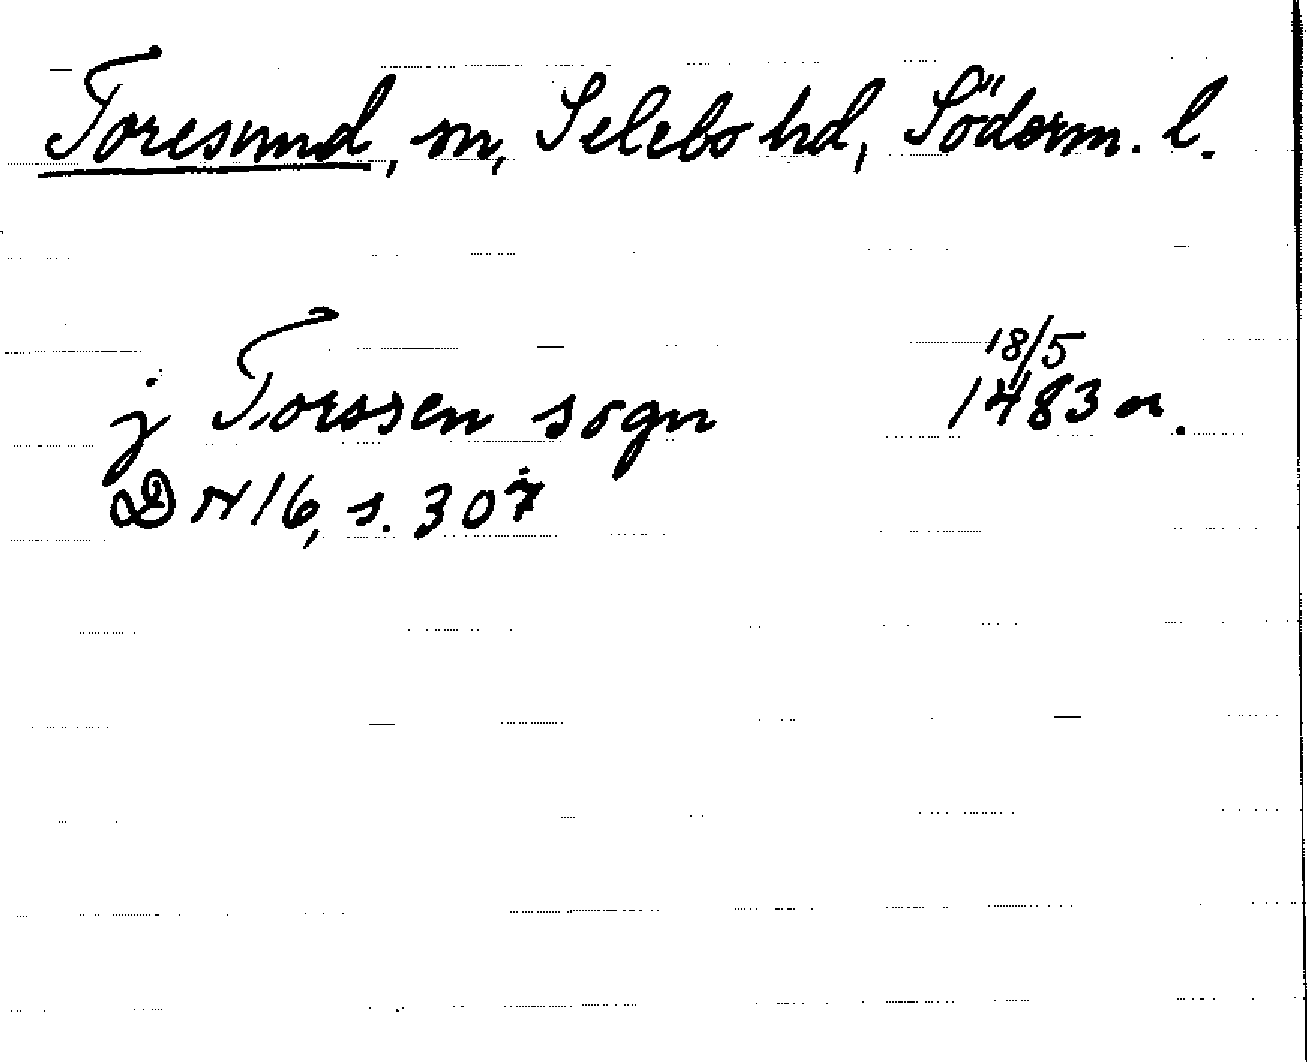 Toresund, sn, Selebo hd, Söderm. l.
18/5
j Torssen sogn 1483 or.
DN 16, s. 307